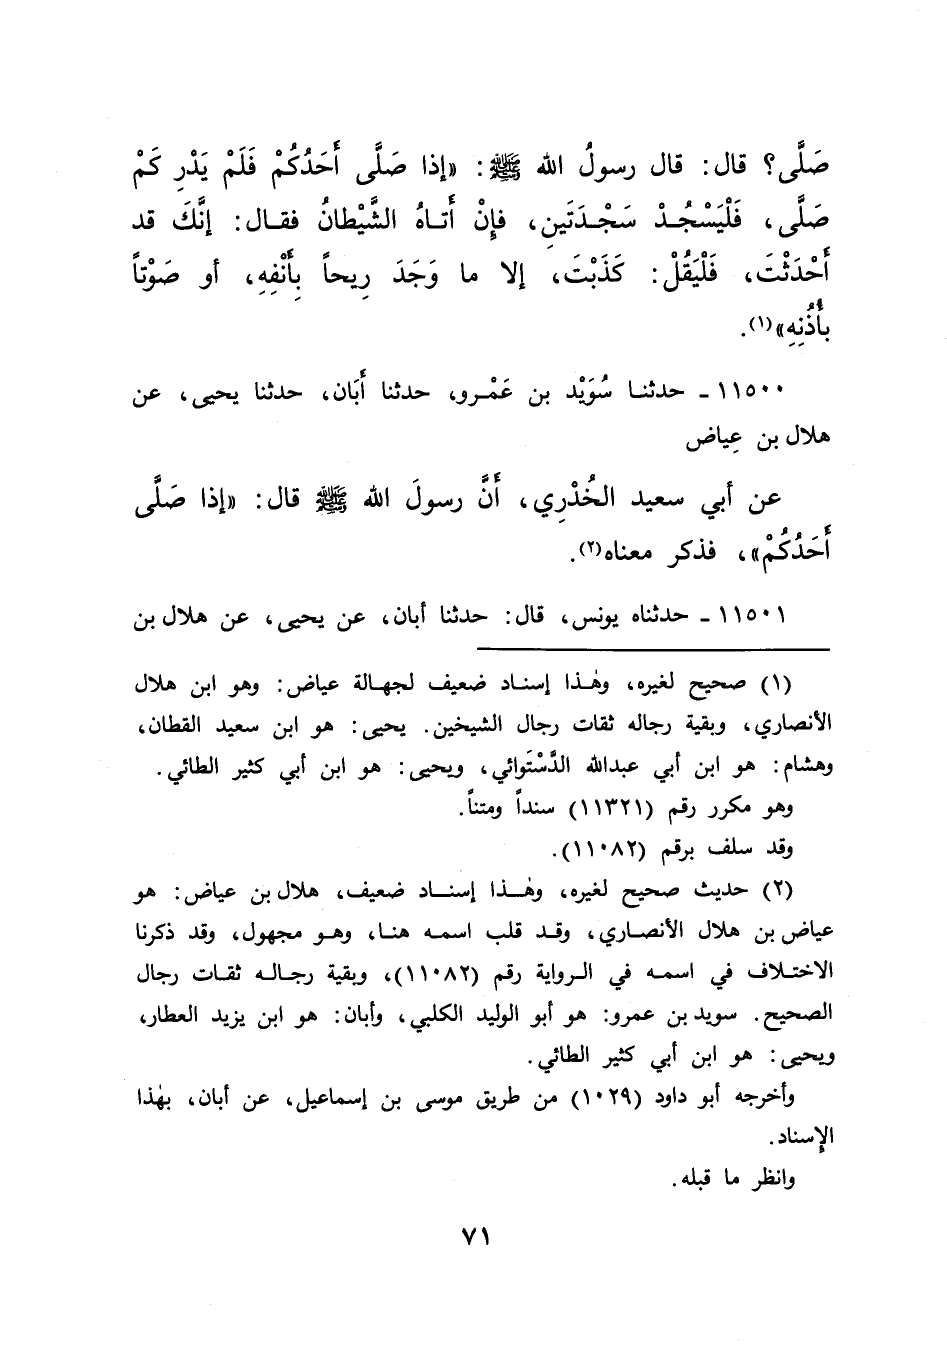 صَلَّى؟ قال: قال رسولُ الله ﷺ: «إذا صَلَّى أَحَدُكُمْ فَلَمْ يَدْرِ كَمْ
صَلَّى، فَلْيَسْجُدْ سَجْدَتَينِ، فإنْ أَتاهُ الشَّيْطانُ فقال: إنَّكَ قد
أَحْدَثْتَ، فَلْيَقُلْ: كَذَبْتَ، إلا ما وَجَدَ رِيحاً بِأَنْفِهِ، أو صَوْتاً
بأُذُنِهِ»(١).
١١٥٠٠ ـ حدثنا سُوَيْد بن عَمْرو، حدثنا أَبَان، حدثنا يحيى، عن
هلال بن عِياض
عن أبي سعيد الخُدْرِي، أَنَّ رسولَ الله ﷺ قال: «إذا صَلَّى
أَحَدُكُمْ»، فذكر معناه(٢).
١١٥٠١ ـ حدثناه يونس، قال: حدثنا أبان، عن يحيى، عن هلال بن
(١) صحيح لغيره، وهٰذا إسناد ضعيف لجهالة عياض: وهو ابن هلال
الأنصاري، وبقية رجاله ثقات رجال الشيخين. يحيى: هو ابن سعيد القطان،
وهشام: هو ابن أبي عبدالله الدَّسْتَوائي، ويحيى: هو ابن أبي كثير الطائي.
وهو مكرر رقم (١١٣٢١) سنداً ومتناً.
وقد سلف برقم (١١٠٨٢).
(٢) حديث صحيح لغيره، وهٰذا إسناد ضعيف، هلال بن عياض: هو
عياض بن هلال الأنصاري، وقد قلب اسمه هنا، وهو مجهول، وقد ذكرنا
الاختلاف في اسمه في الرواية رقم (١١٠٨٢)، وبقية رجاله ثقات رجال
الصحيح. سويد بن عمرو: هو أبو الوليد الكلبي، وأبان: هو ابن يزيد العطار،
ويحيى: هو ابن أبي كثير الطائي.
وأخرجه أبو داود (١٠٢٩) من طريق موسى بن إسماعيل، عن أبان، بهٰذا
الإسناد.
وانظر ما قبله.
٧١